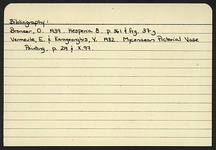 Bibliography:
Broneer, O. 1939. Hesperia 8. p. 361 & fig. 37 g
Vermeule, E. & Karageorghis, V. 1982. Mycenaean Pictorial Vase
Painting. p. 29 & X.97.